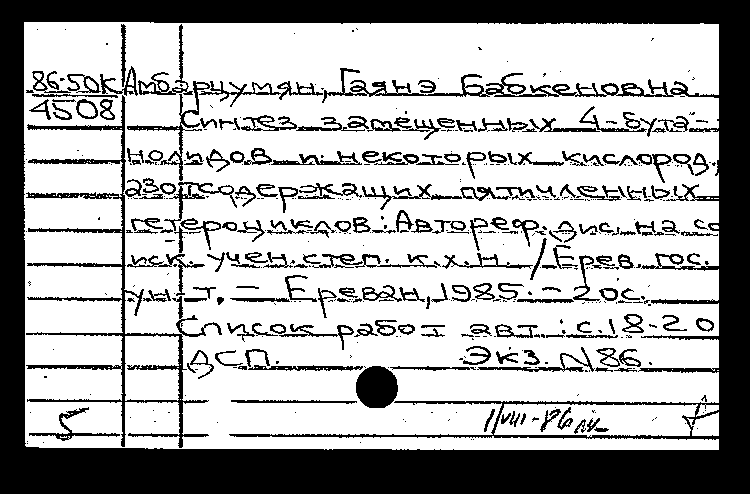 86-50К Амбарцумян, Гаянэ Бабкеновна
4508 Синтез замещенных 4-бута-
нолидов и некоторых кислород,
азотсодержащих пятичленных
гетероциклов: Автореф. дис. на со
иск. учен. степ. к.х.н. / Ерев. гос.
ун-т. – Ереван, 1985. – 20с.
Список работ авт.: с.18-20
ДСП. Экз. N86.
5 1/VIII-86